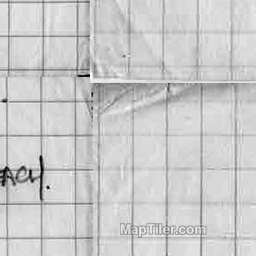 EACH.
MapTiler.com